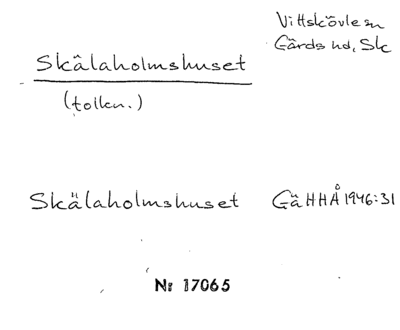 Vittskövle sn
Gärds hd, Sk
Skälaholmshuset
(tolkn.)
Skälaholmshuset GäHHÅ 1946:31
Nr 17065